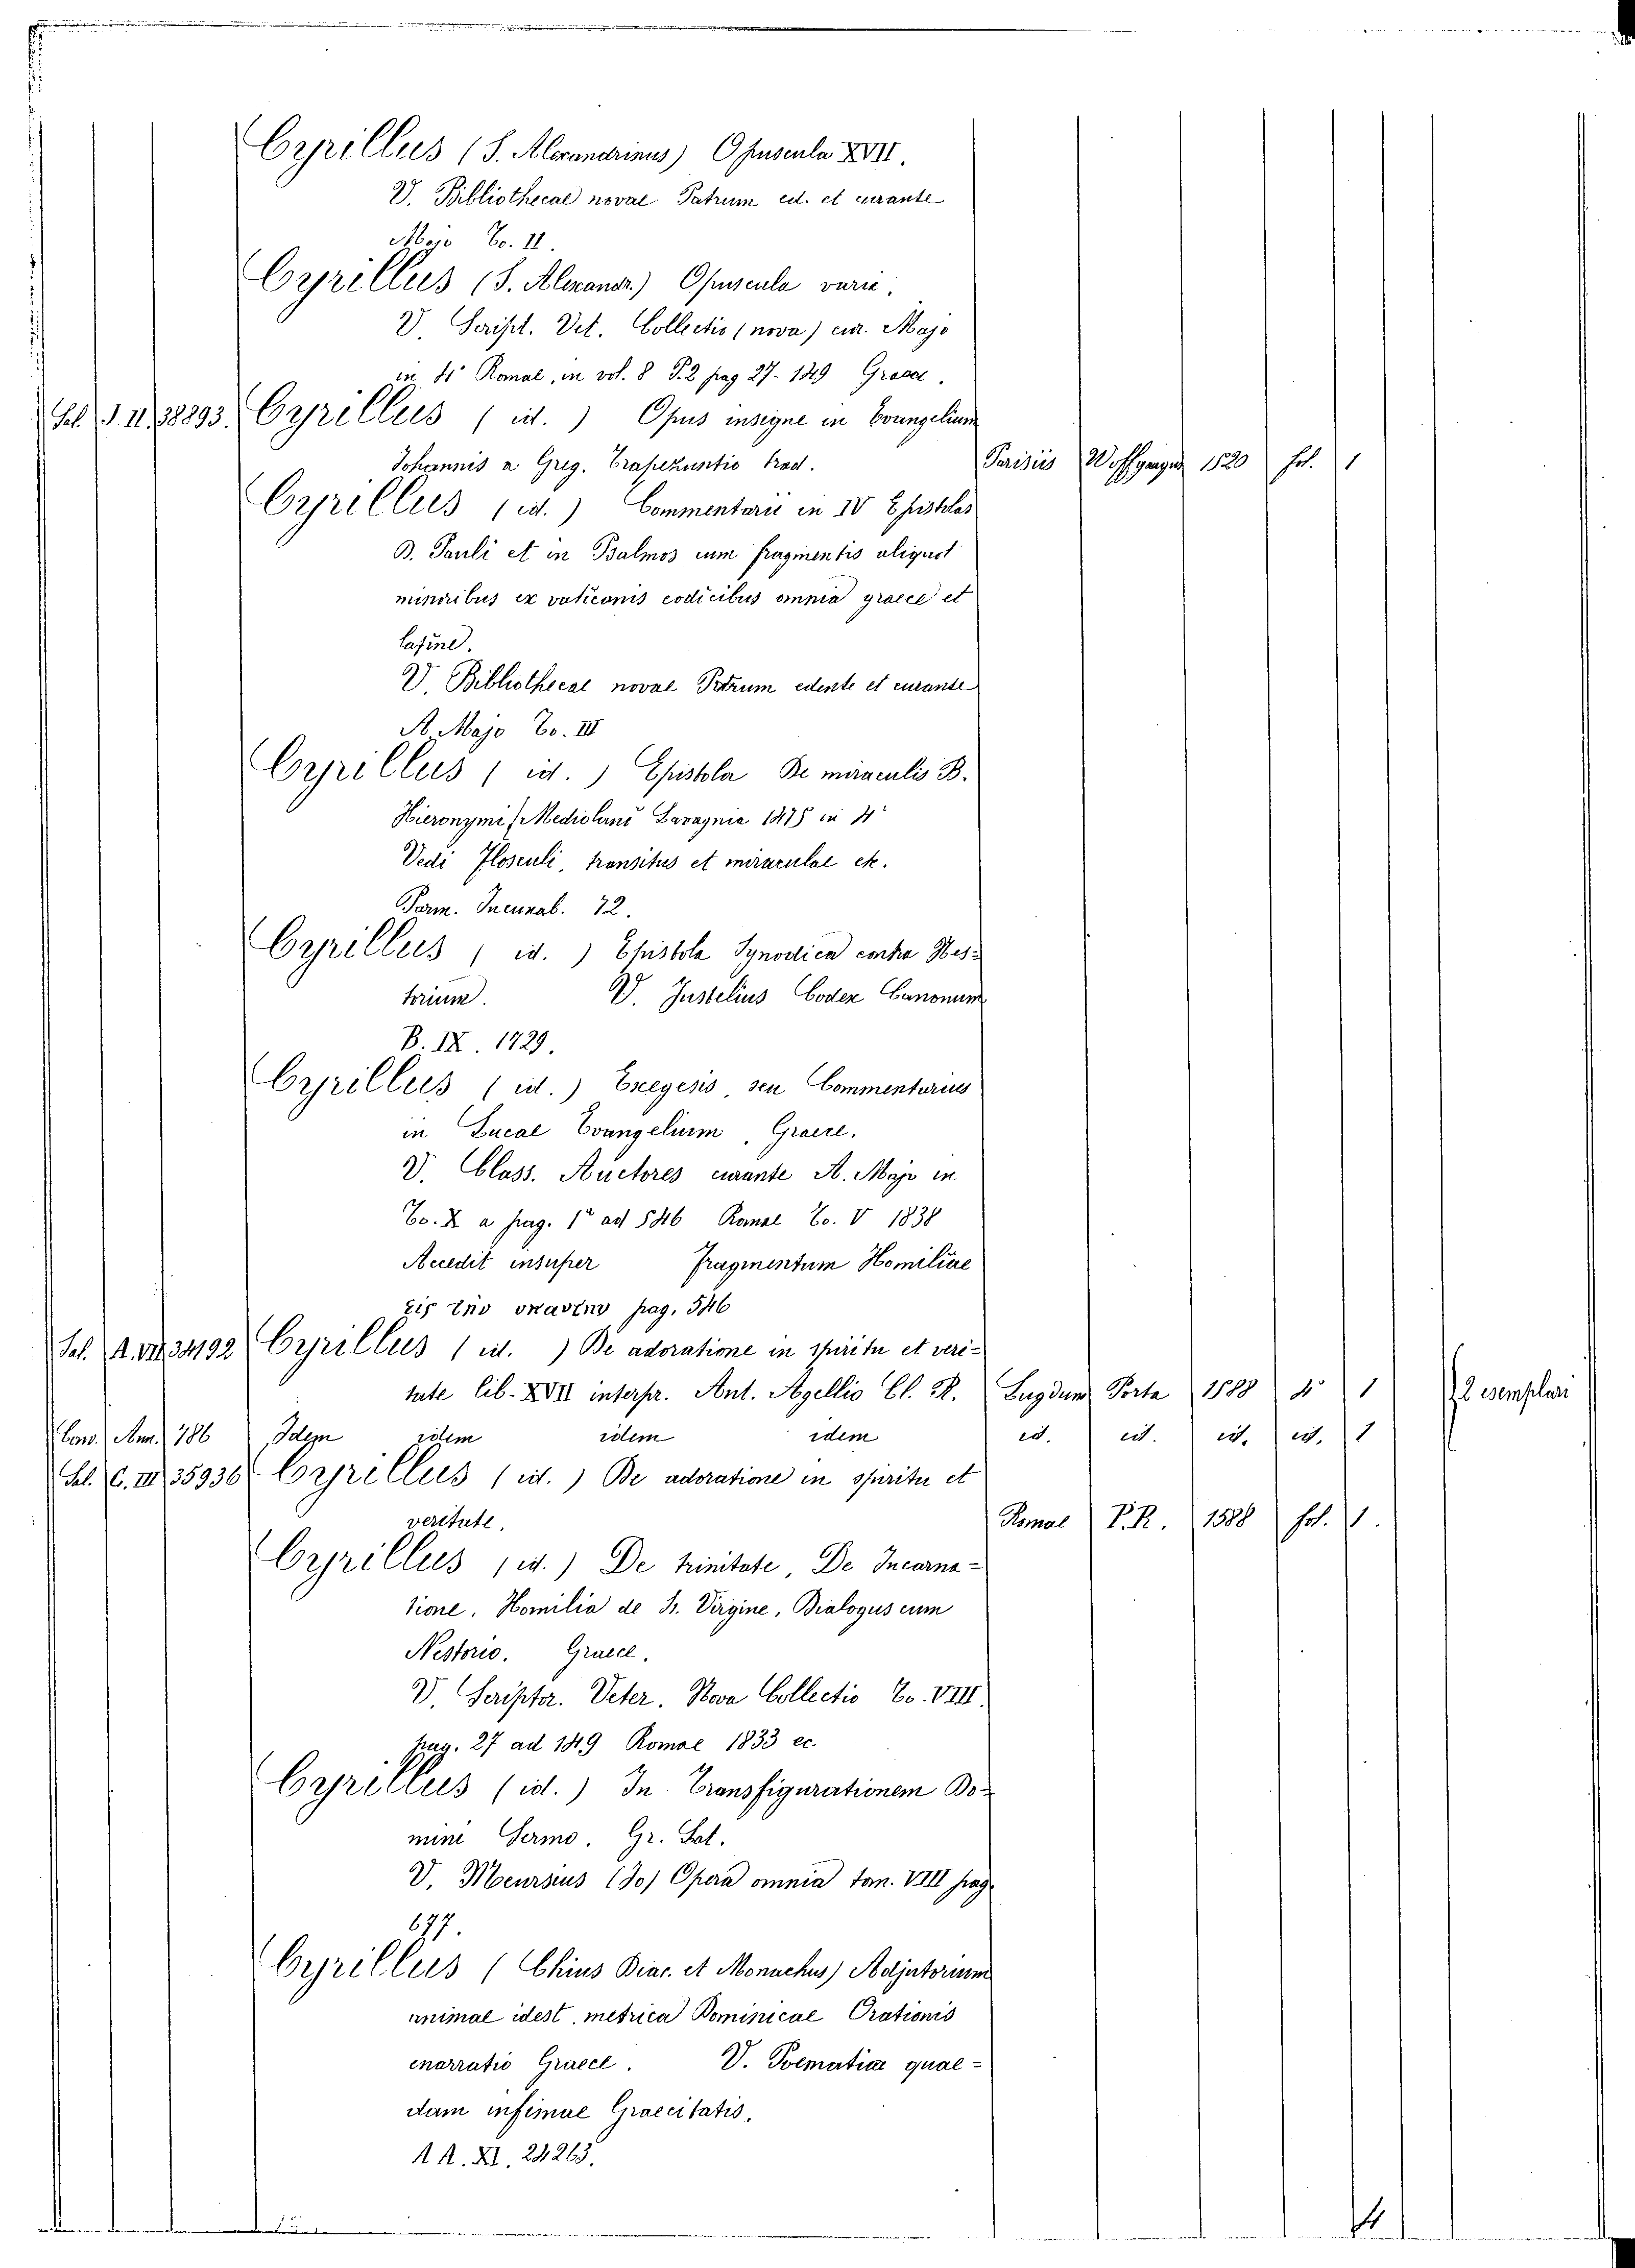 Cyrillus (S. Alexandrinus) Opuscula XVII.
V. Bibliothecae novae Patrum ed. et curante
Majo To. II.
Cyrillus (S. Alexandr.) Opuscula varia.
V. Script. Vet. Collectio (nova) cur. Majo
in 4° Romae, in vol. 8 P. 2 pag 27-149 Graece.
Sal. J. II. 38893. Cyrillus ( id. ) Opus insigne in Evangelium
Johannis a Greg. Trapezuntio trad. Parisiis Woffgangus 1520 fol. 1
Cyrillus (id.) Commentarii in IV Epistolas
B. Pauli et in Psalmos cum fragmentis aliquot
minoribus ex vaticanis codicibus omnia graece et
latine.
V. Bibliothecae novae Patrum edente et curante
A. Majo To. III
Cyrillus ( id. ) Epistola De miraculis B.
Hieronymi, Mediolani Lavagnia 1475 in 4°
Vedi Flosculi, transitus et miraculae etc.
Parm. Incunab. 72.
Cyrillus ( id. ) Epistola Synodica contra Nes-
torium. V. Justelius Codex Canonum
B. IX. 1729.
Cyrillus (id.) Exegesis, seu Commentarius
in Lucae Evangelium, Graece.
V. Class. Auctores curante A. Majo in
To. X a pag. 1ª ad 546 Romae To. V 1838
Accedit insuper fragmentum Homiliae
εις την υπαντην pag. 546
Sal. A. VII. 34192 Cyrillus ( id. ) De adoratione in spiritu et veri-
tate lib. XVII interpr. Ant. Agellio Cl. R. Lugduni Porta 1588 4° 1 2 esemplari
Cam. Ann. 786 Idem idem idem idem id. id. id. id. 1
Sal. C. III 35936 Cyrillus (id.) De adoratione in spiritu et
veritate. Romae P. R. 1588 fol. 1.
Cyrillus (id.) De trinitate, De Incarna-
tione, Homilia de B. Virgine, Dialogus cum
Nestorio. Graece.
V. Scriptor. Veter. Nova Collectio To. VIII.
pag. 27 ad 149 Romae 1833 ec.
Cyrillus (id.) In Transfigurationem Do-
mini Sermo. Gr. Lat.
V. Meursius (Jo) Opera omnia tom. VIII pag.
677.
Cyrillus (Chius Diac. et Monachus) Adjutorium
animae idest metrica Dominicae Orationis
enarratio Graece. V. Poematia quae-
dam infimae Graecitatis.
A A. XI. 24263.
4